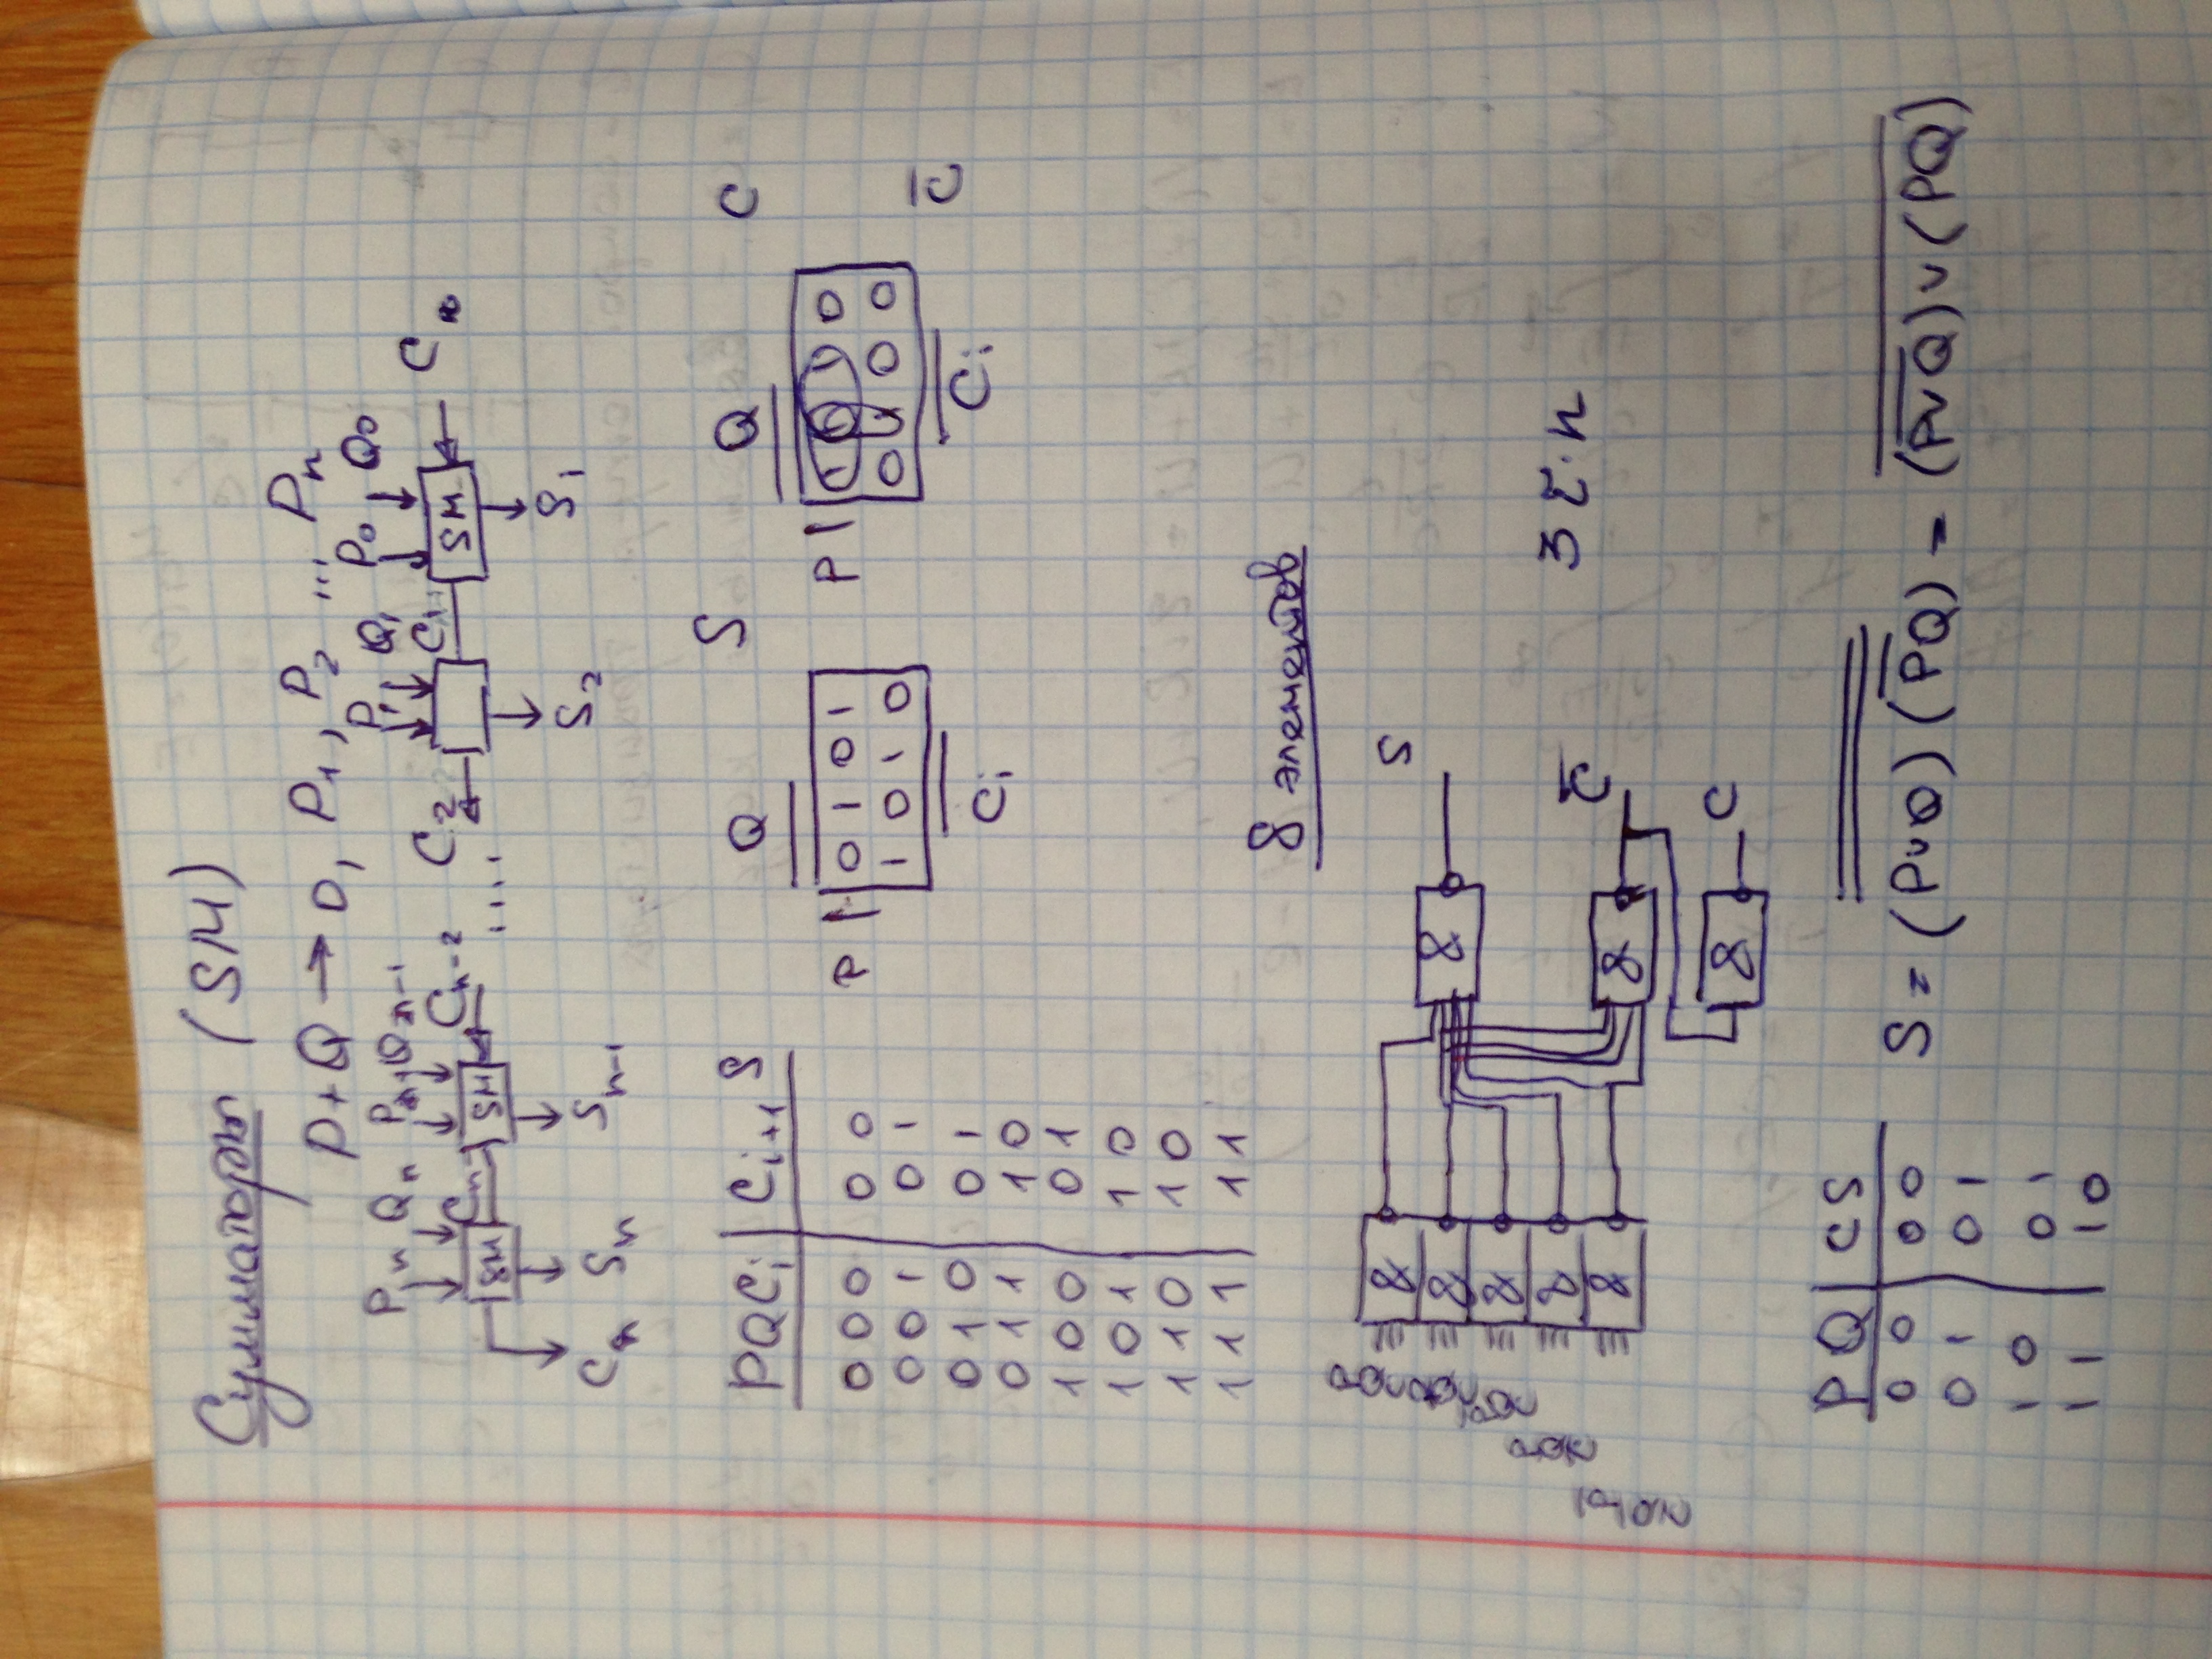 Сумматоры (SM)
P+Q → 0, P₁, P₂ ... Pₙ
Pₙ Qₙ Pₙ₋₁ Qₙ₋₁ P₁ Q₁ P₀ Q₀
SM Cₙ₋₁ SM Cₙ₋₂ .... C₂ C₁ SM
Cₙ Sₙ Sₙ₋₁ S₂ S₁
PQCᵢ | Cᵢ₊₁ S
0 0 0 | 0 0
0 0 1 | 0 1
0 1 0 | 0 1
0 1 1 | 1 0
1 0 0 | 0 1
1 0 1 | 1 0
1 1 0 | 1 0
1 1 1 | 1 1
Q S
P 0 1 0 1
1 0 1 0
Cᵢ
Q C
P 1 1 1 0
0 1 0 0
Cᵢ C̅
8 элементов
& & & & &
& S
& C̅
& C
3 τ.п
P Q | C S
0 0 | 0 0
0 1 | 0 1
1 0 | 0 1
1 1 | 1 0
S = (P∨Q) (P̅Q̅) = (P̅∨Q̅)∨(PQ)